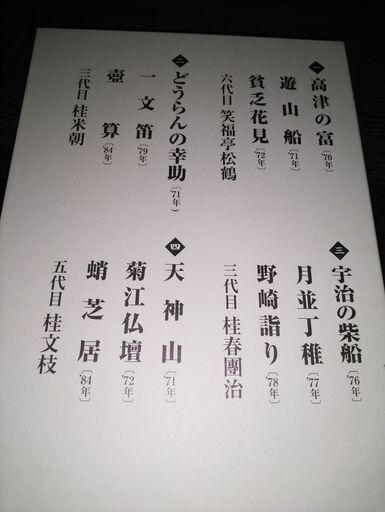 一 高津の富〔'70年〕
遊山船〔'71年〕
貧乏花見〔'72年〕
六代目 笑福亭松鶴
二 どうらんの幸助〔'71年〕
一文笛〔'79年〕
壺算〔'84年〕
三代目 桂米朝
三 宇治の柴船〔'76年〕
月並丁稚〔'77年〕
野崎詣り〔'78年〕
三代目 桂春團治
四 天神山〔'71年〕
菊江仏壇〔'72年〕
蛸芝居〔'84年〕
五代目 桂文枝